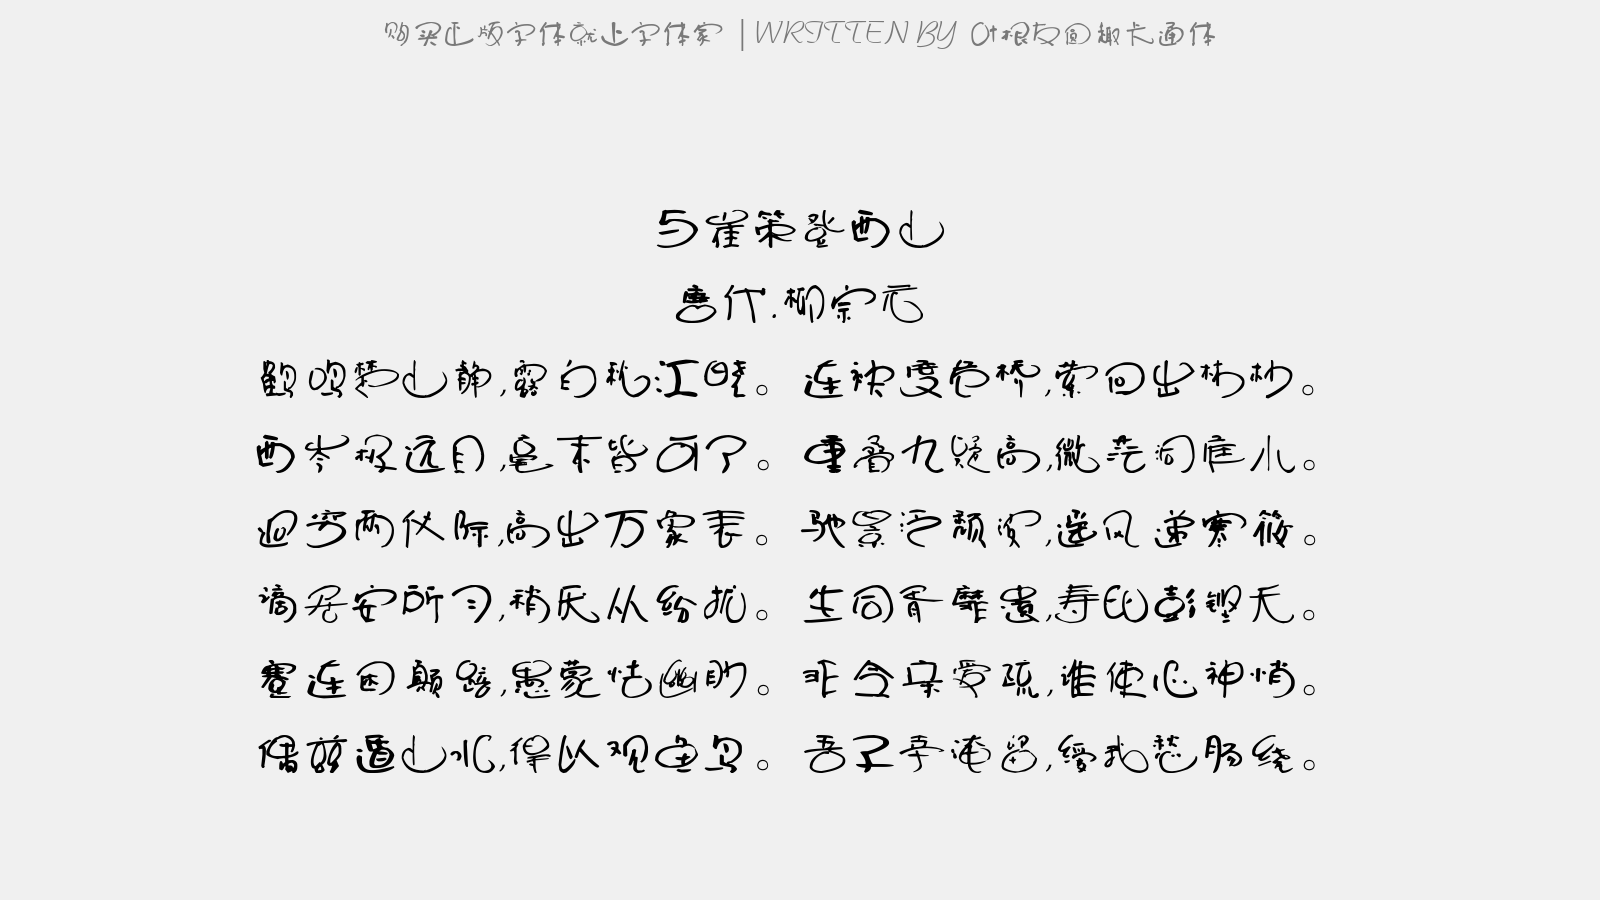 购买正版字体就上字体家 | WRITTEN BY 叶根友圆趣卡通体
与崔策登西山
唐代.柳宗元
鹤鸣楚山静,露白秋江晓。连袂度危桥,萦回出林杪。
西岑极远目,毫末皆可了。重叠九疑高,微茫洞庭小。
迥穷两仪际,高出万象表。驰景泛颓波,遥风递寒筱。
谪居安所习,稍厌从纷扰。生同胥靡遗,寿比彭铿夭。
蹇连困颠踣,愚蒙怯幽眇。非令亲爱疏,谁使心神悄。
偶兹遁山水,得以观鱼鸟。吾子幸淹留,缓我愁肠绕。